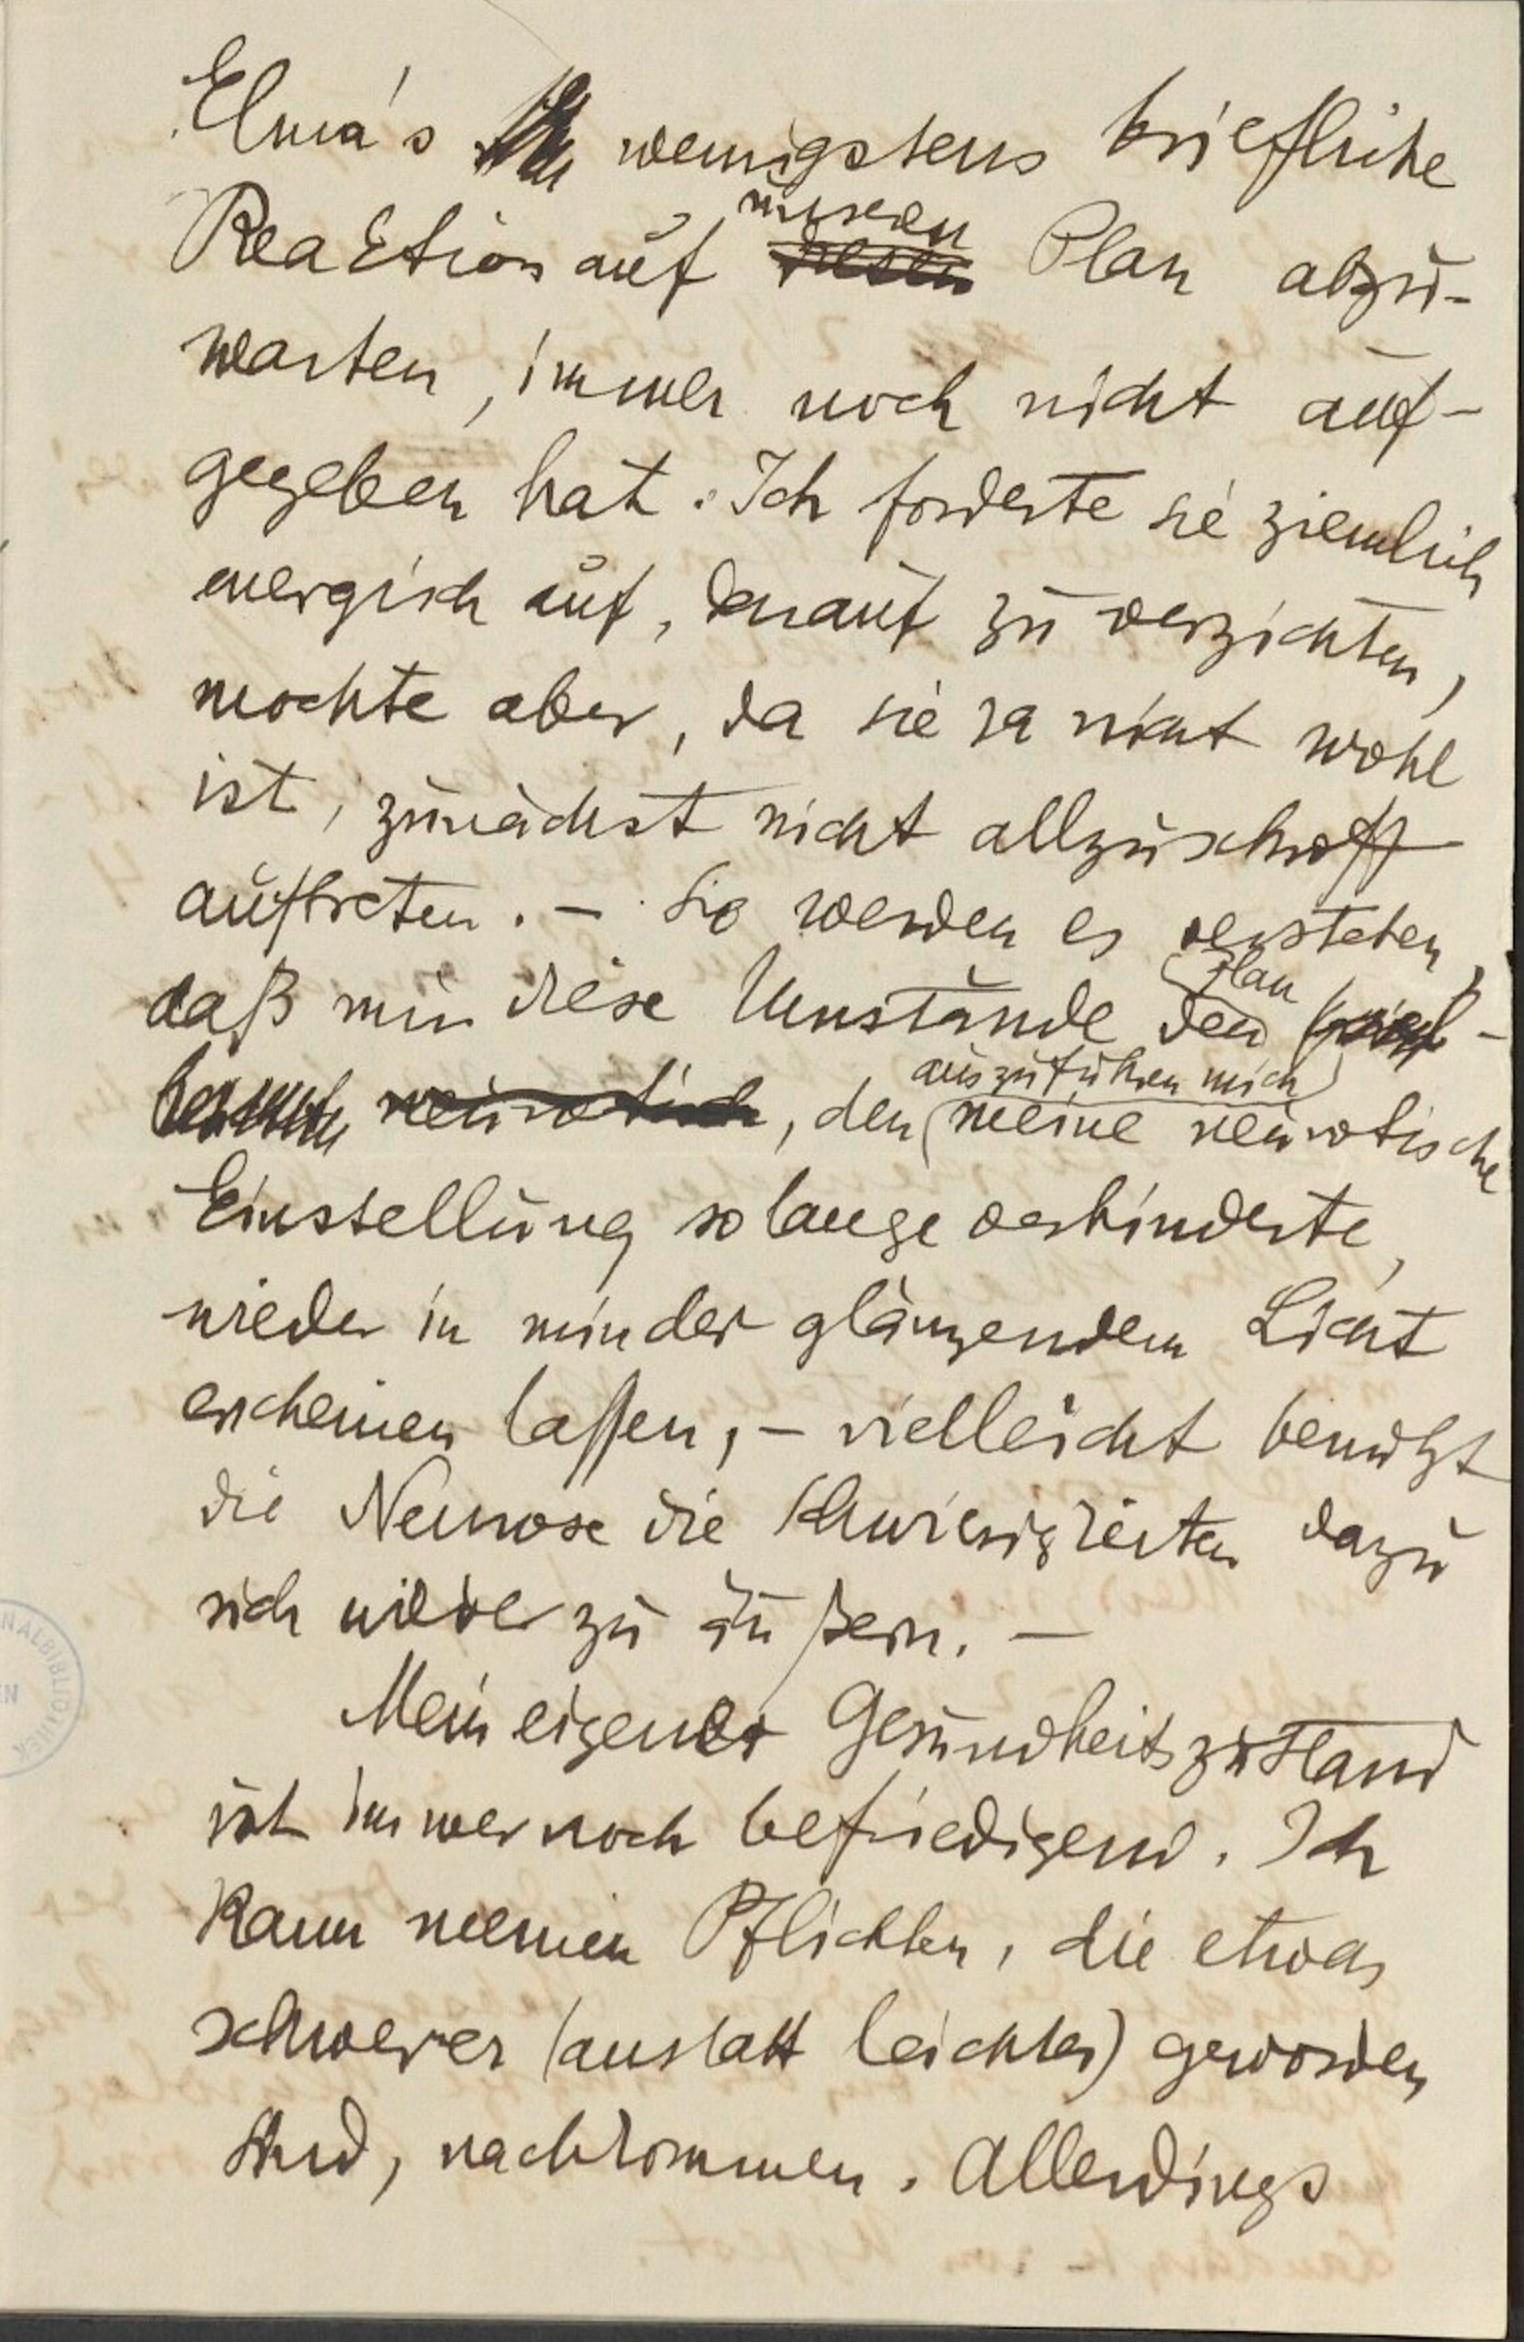 Elma's wenigstens briefliche
Reaktion auf unseren Plan abzu-
warten, immer noch nicht auf-
gegeben hat. Ich forderte sie ziemlich
energisch auf, darauf zu verzichten,
mochte aber, da sie ja nicht wohl
ist, zunächst nicht allzuschroff
auftreten. – Sie werden es verstehen,
daß mir diese Umstände den Plan
neurotisch, den auszuführen mich meine neurotische
Einstellung so lange verhinderte,
wieder in minder glänzendem Licht
erscheinen lassen, – vielleicht benützt
die Neurose die Schwierigkeiten dazu
sich wieder zu äußern. –
Mein eigener Gesundheitszustand
ist immer noch befriedigend. Ich
kann meinen Pflichten, die etwas
schwerer (anstatt leichter) geworden
sind, nachkommen. Allerdings
NALBIBLIOTHEK
EN